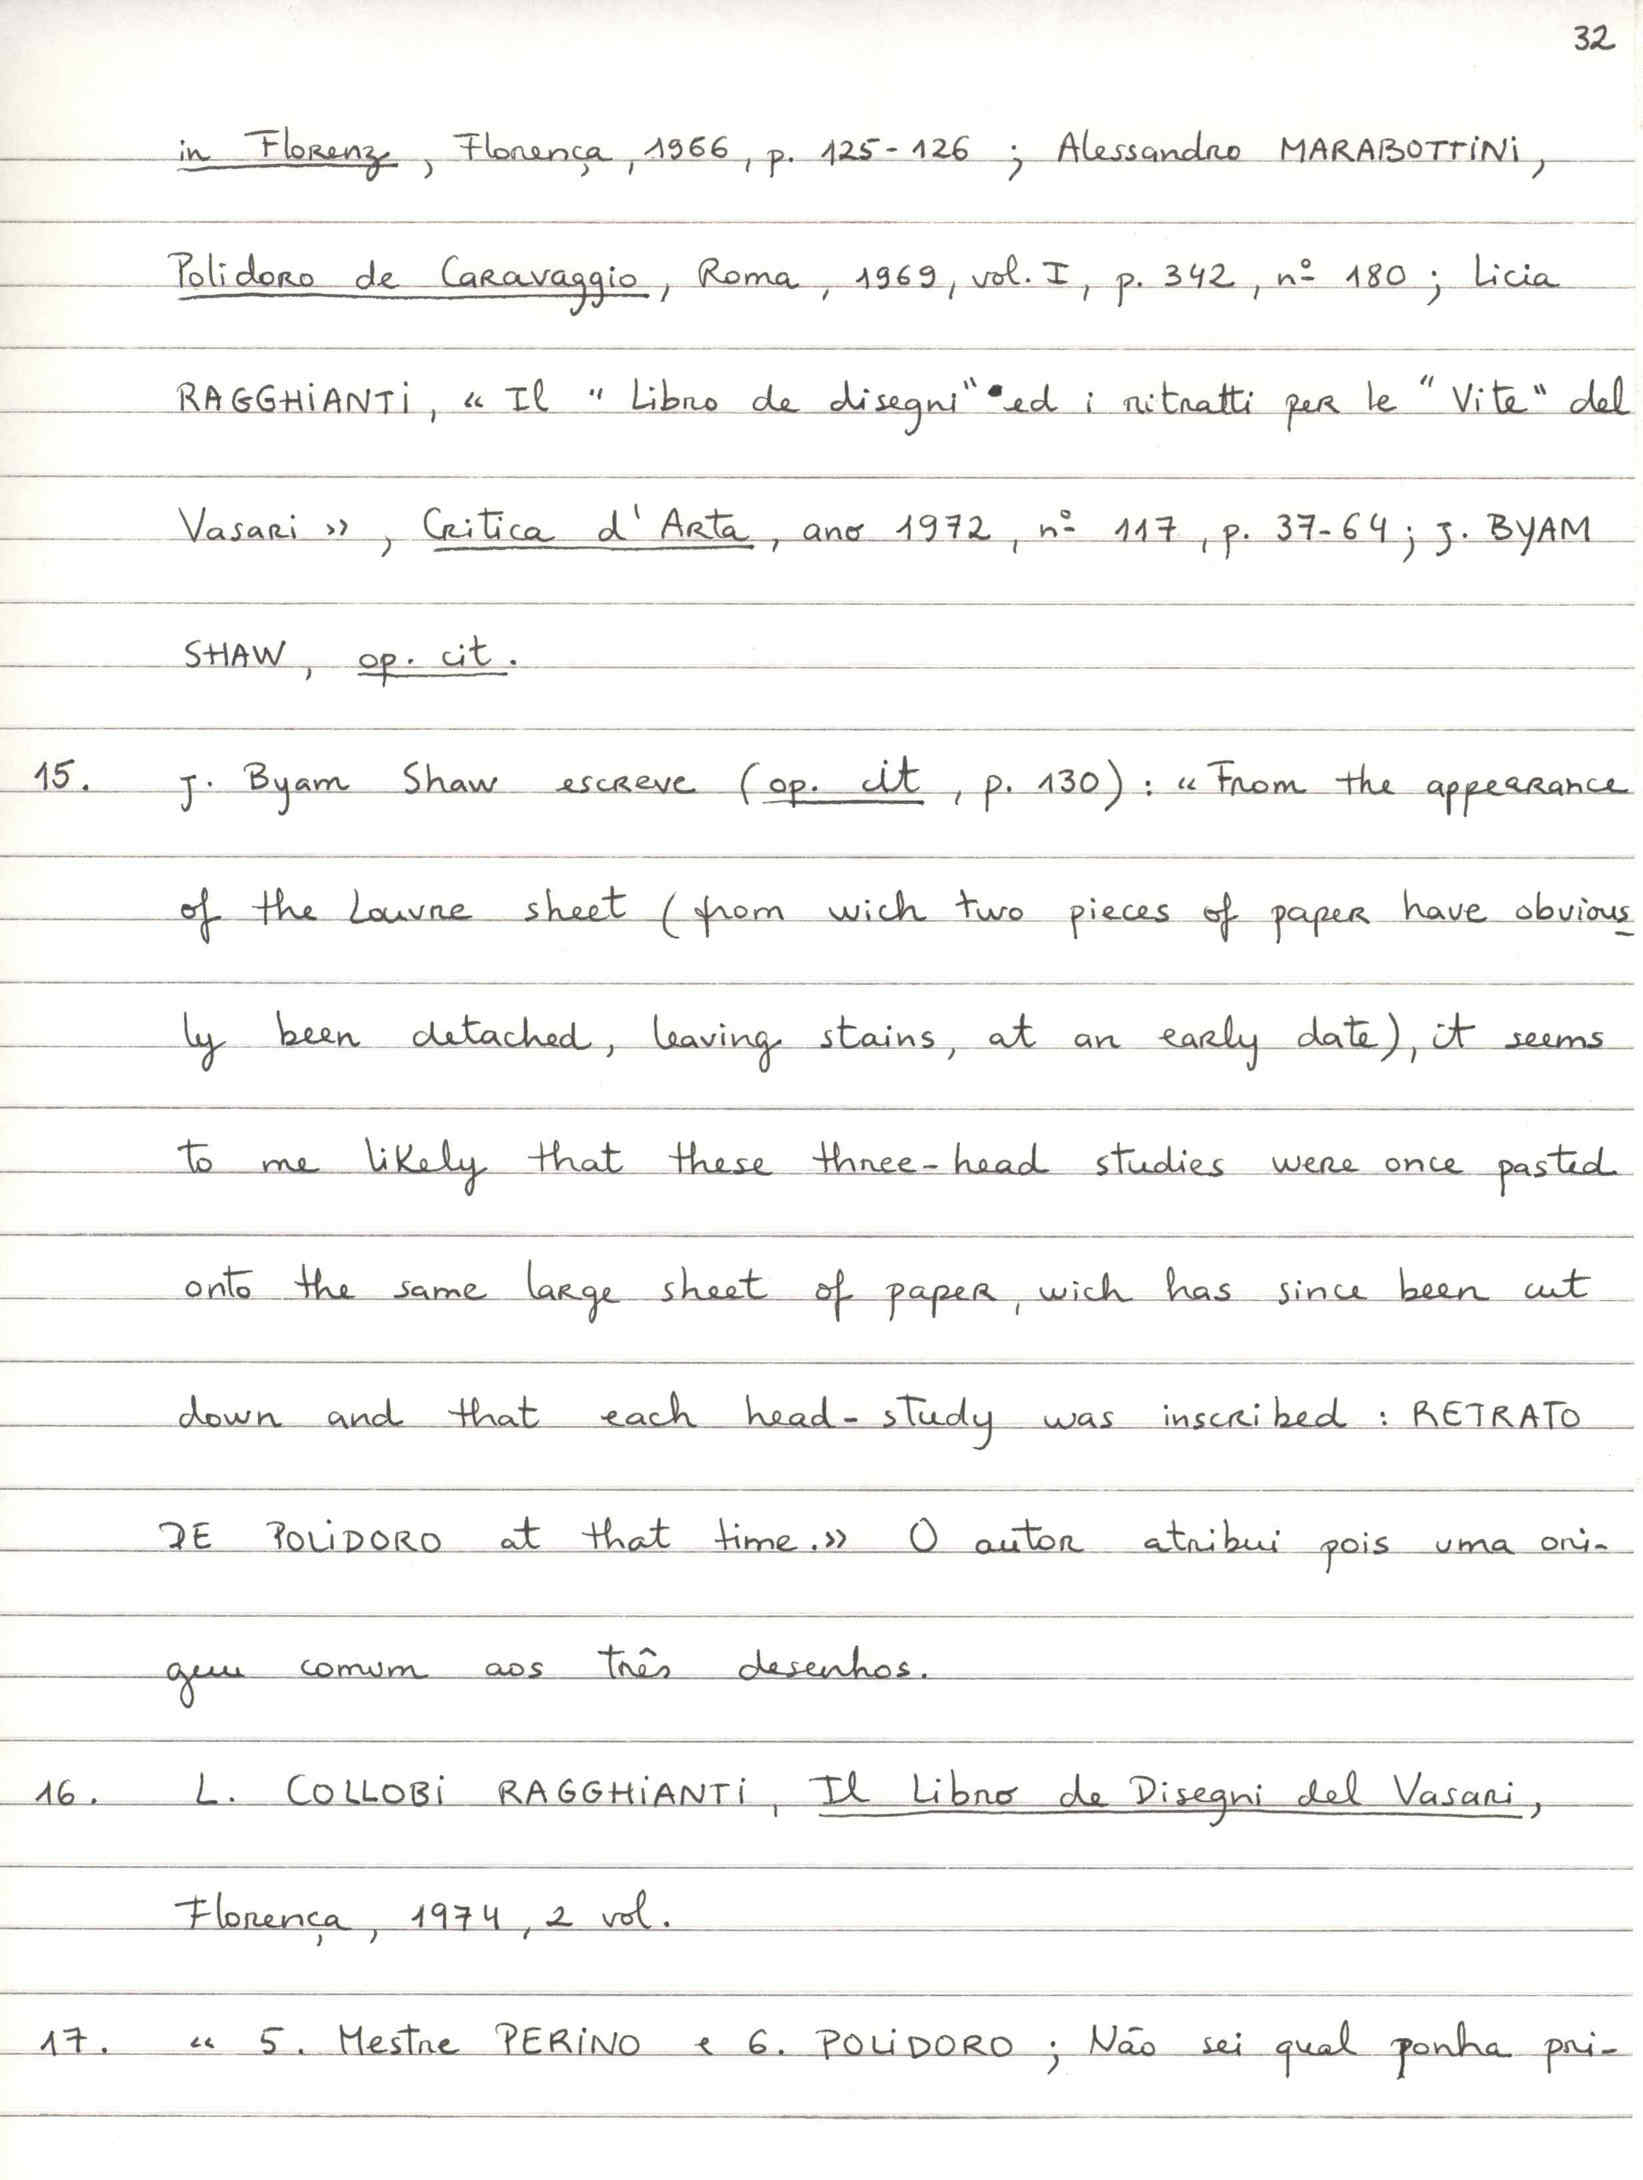 32
in Florenz, Florença, 1966, p. 125-126 ; Alessandro MARABOTTiNi,
Polidoro de Caravaggio, Roma, 1969, vol. I, p. 342, nº 180 ; Licia
RAGGHiANTi, « Il " Libro de disegni" ed i ritratti per le "Vite" del
Vasari », Critica d'Arta, ano 1972, nº 117, p. 37-64 ; J. BYAM
SHAW, op. cit.
15. J. Byam Shaw escreve (op. cit, p. 130) : « From the appearance
of the Louvre sheet (from wich two pieces of paper have obvious
ly been detached, leaving stains, at an early date), it seems
to me likely that these three-head studies were once pasted
onto the same large sheet of paper, wich has since been cut
down and that each head-study was inscribed : RETRATO
DE POLiDORO at that time.» O autor atribui pois uma ori-
gem comum aos três desenhos.
16. L. COLLOBi RAGGHiANTi, Il Libro de Disegni del Vasari,
Florença, 1974, 2 vol.
17. « 5. Mestre PERiNO e 6. POLiDORO ; Não sei qual ponha pri-